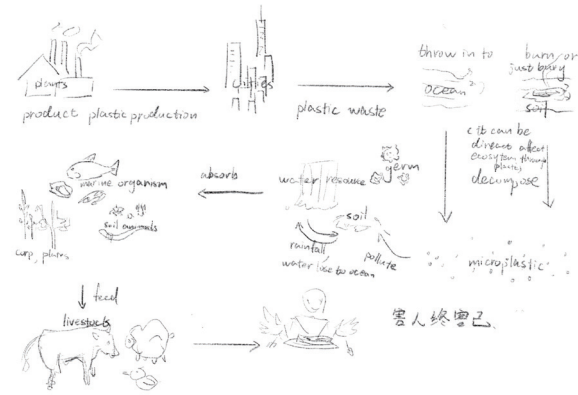 plants
product plastic production
cities
plastic waste
throw in to
ocean
burn or
just bury
soil
c it can be
direct affect
ecosystem through
plastic
decompose
microplastic
pollute
soil
germ
water resource
rainfall
water lose to ocean
absorb
marine organism
soil
plants
feed
livestock
害人终害己